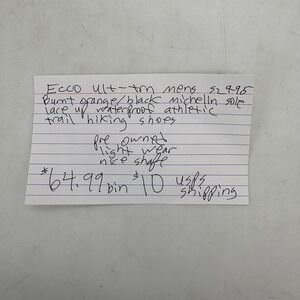 Ecco ult-trn mens sz 9-95
Burnt orange/black michelin sole
lace up waterproof athletic
trail hiking shoes
pre owned
light wear
nice shape
$64.99 bin $10 usps
shipping